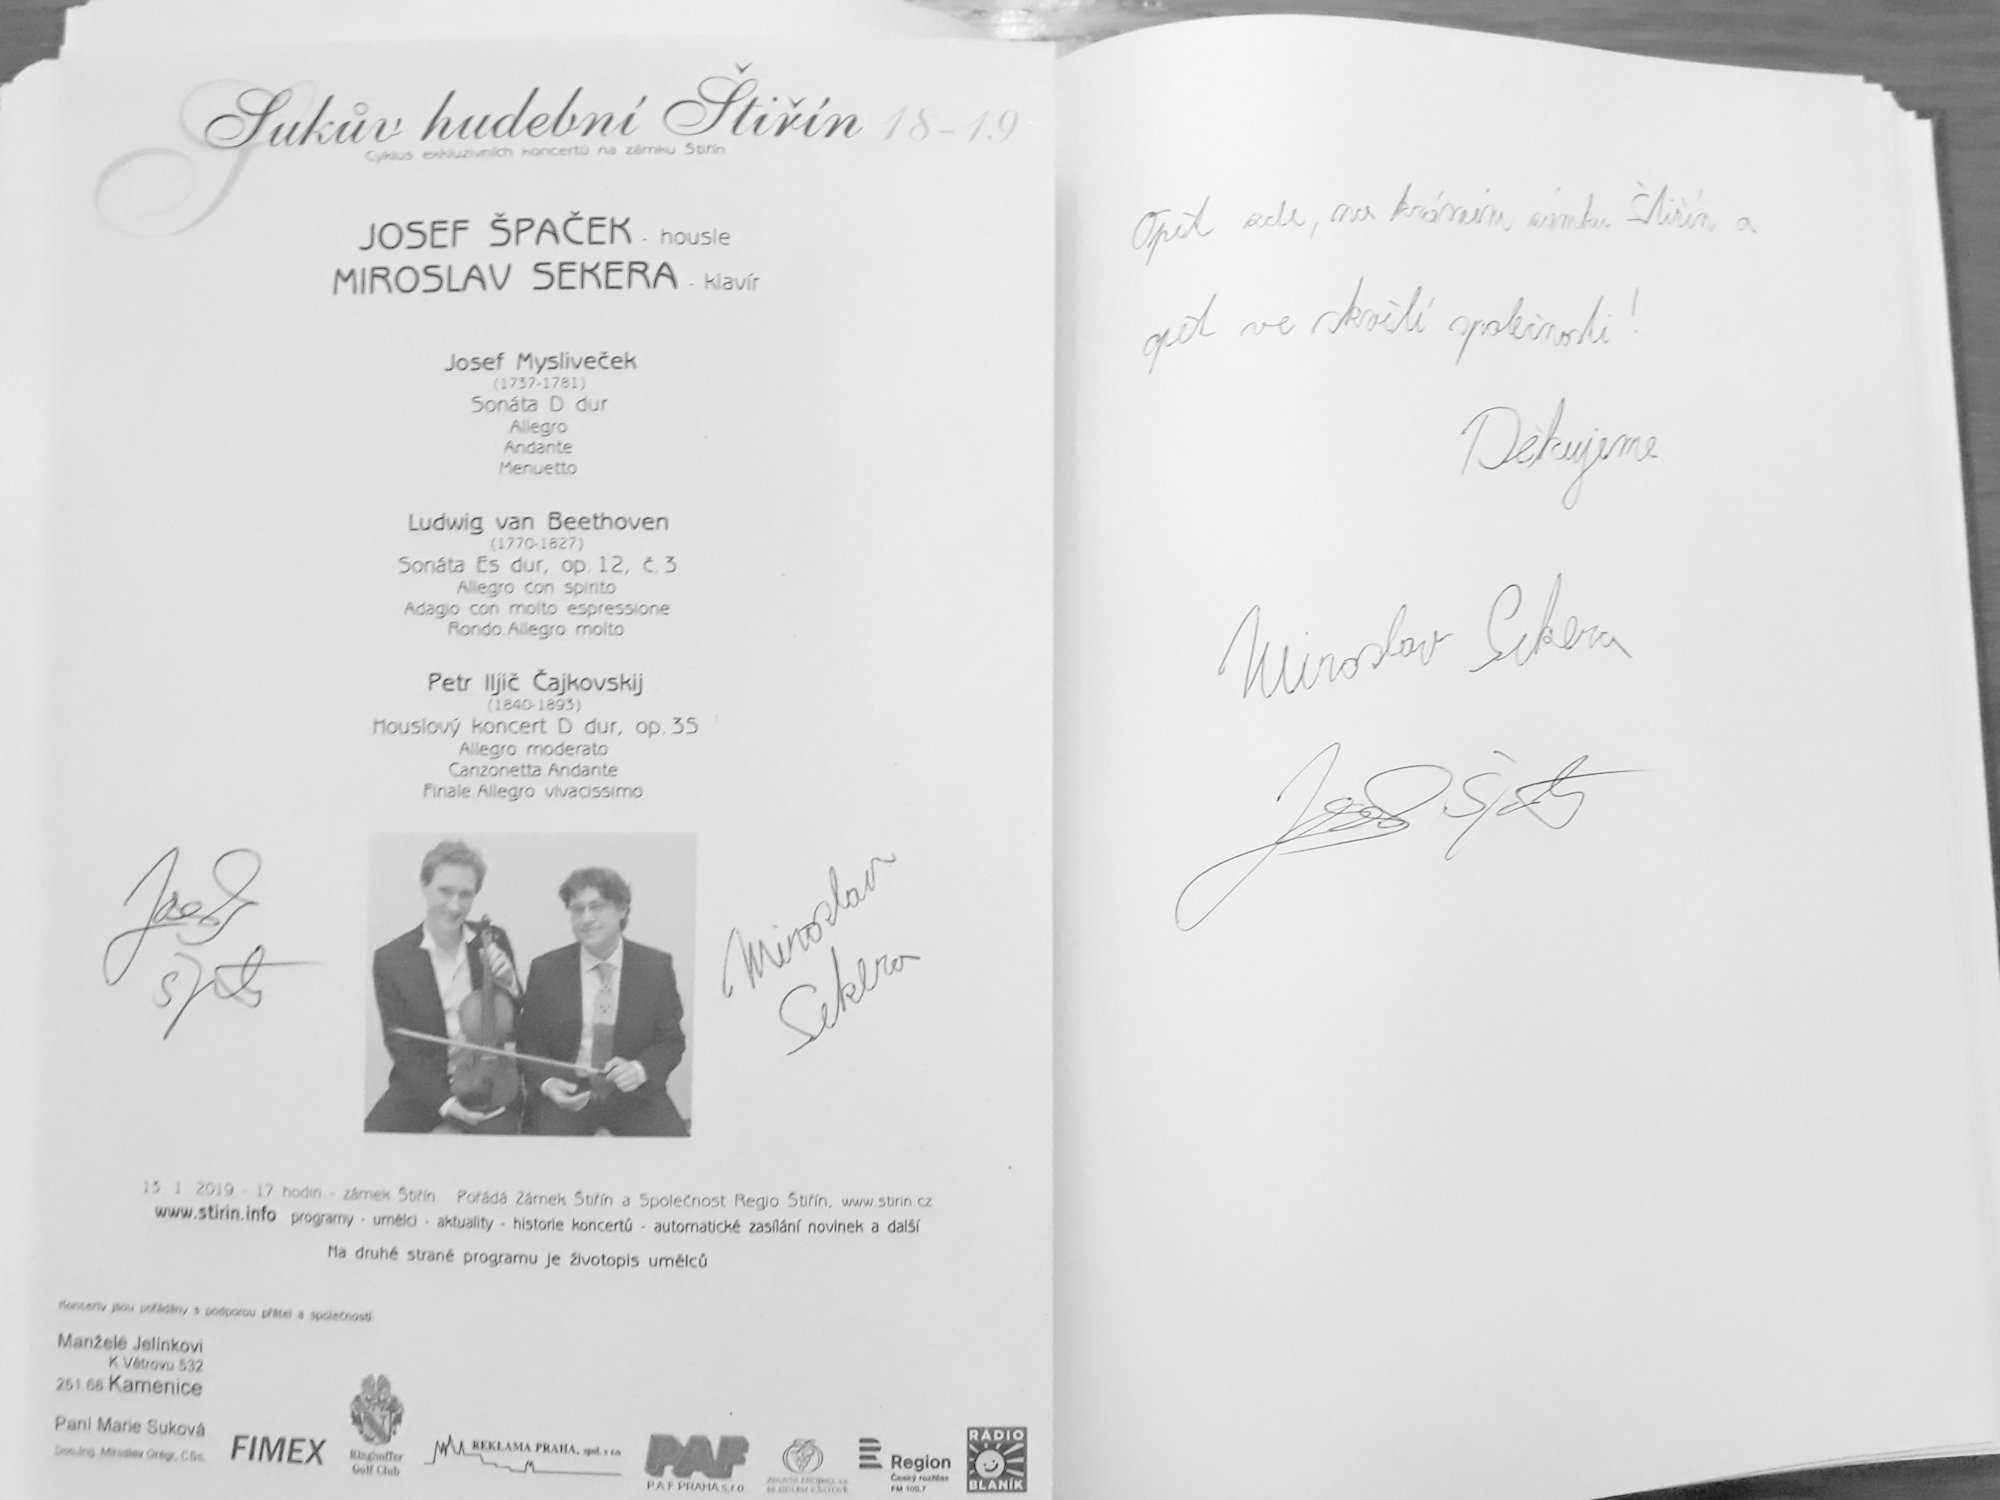 Sukův hudební Štiřín 18-19
Cyklus exkluzivních koncertů na zámku Štiřín
JOSEF ŠPAČEK - housle
MIROSLAV SEKERA - klavír
Josef Mysliveček
(1737-1781)
Sonáta D dur
Allegro
Andante
Menuetto
Ludwig van Beethoven
(1770-1827)
Sonáta Es dur, op. 12, č. 3
Allegro con spirito
Adagio con molto espressione
Rondo.Allegro molto
Petr Iljič Čajkovskij
(1840-1893)
Houslový koncert D dur, op. 35
Allegro moderato
Canzonetta.Andante
Finale.Allegro vivacissimo
Josef
Miroslav
Sekera
1. 2019 - 17 hodin - zámek Štiřín. Pořádá Zámek Štiřín a Společnost Regio Štiřín, www.stirin.cz
www.stirin.info programy - umělci - aktuality - historie koncertů - automatické zasílání novinek a další
Na druhé straně programu je životopis umělců
Koncerty jsou pořádány s podporou přátel a společností
Manželé Jelínkovi
K Větrovu 532
251 68 Kamenice
Paní Marie Suková
Doc.Ing. Miroslav Grégr, CSc.
FIMEX
Ringhoffer
Golf Club
REKLAMA PRAHA, spol. s r.o.
PAF
P.A.F PRAHA s.r.o.
ZNOVÍN ZNOJMO, a.s.
SE SÍDLEM V ŠATOVĚ
Region
Český rozhlas
FM 100,7
RADIO
BLANÍK
Opět zde, na krásném zámku Štiřín a
opět ve skvělé společnosti!
Děkujeme
Miroslav Sekera
Josef